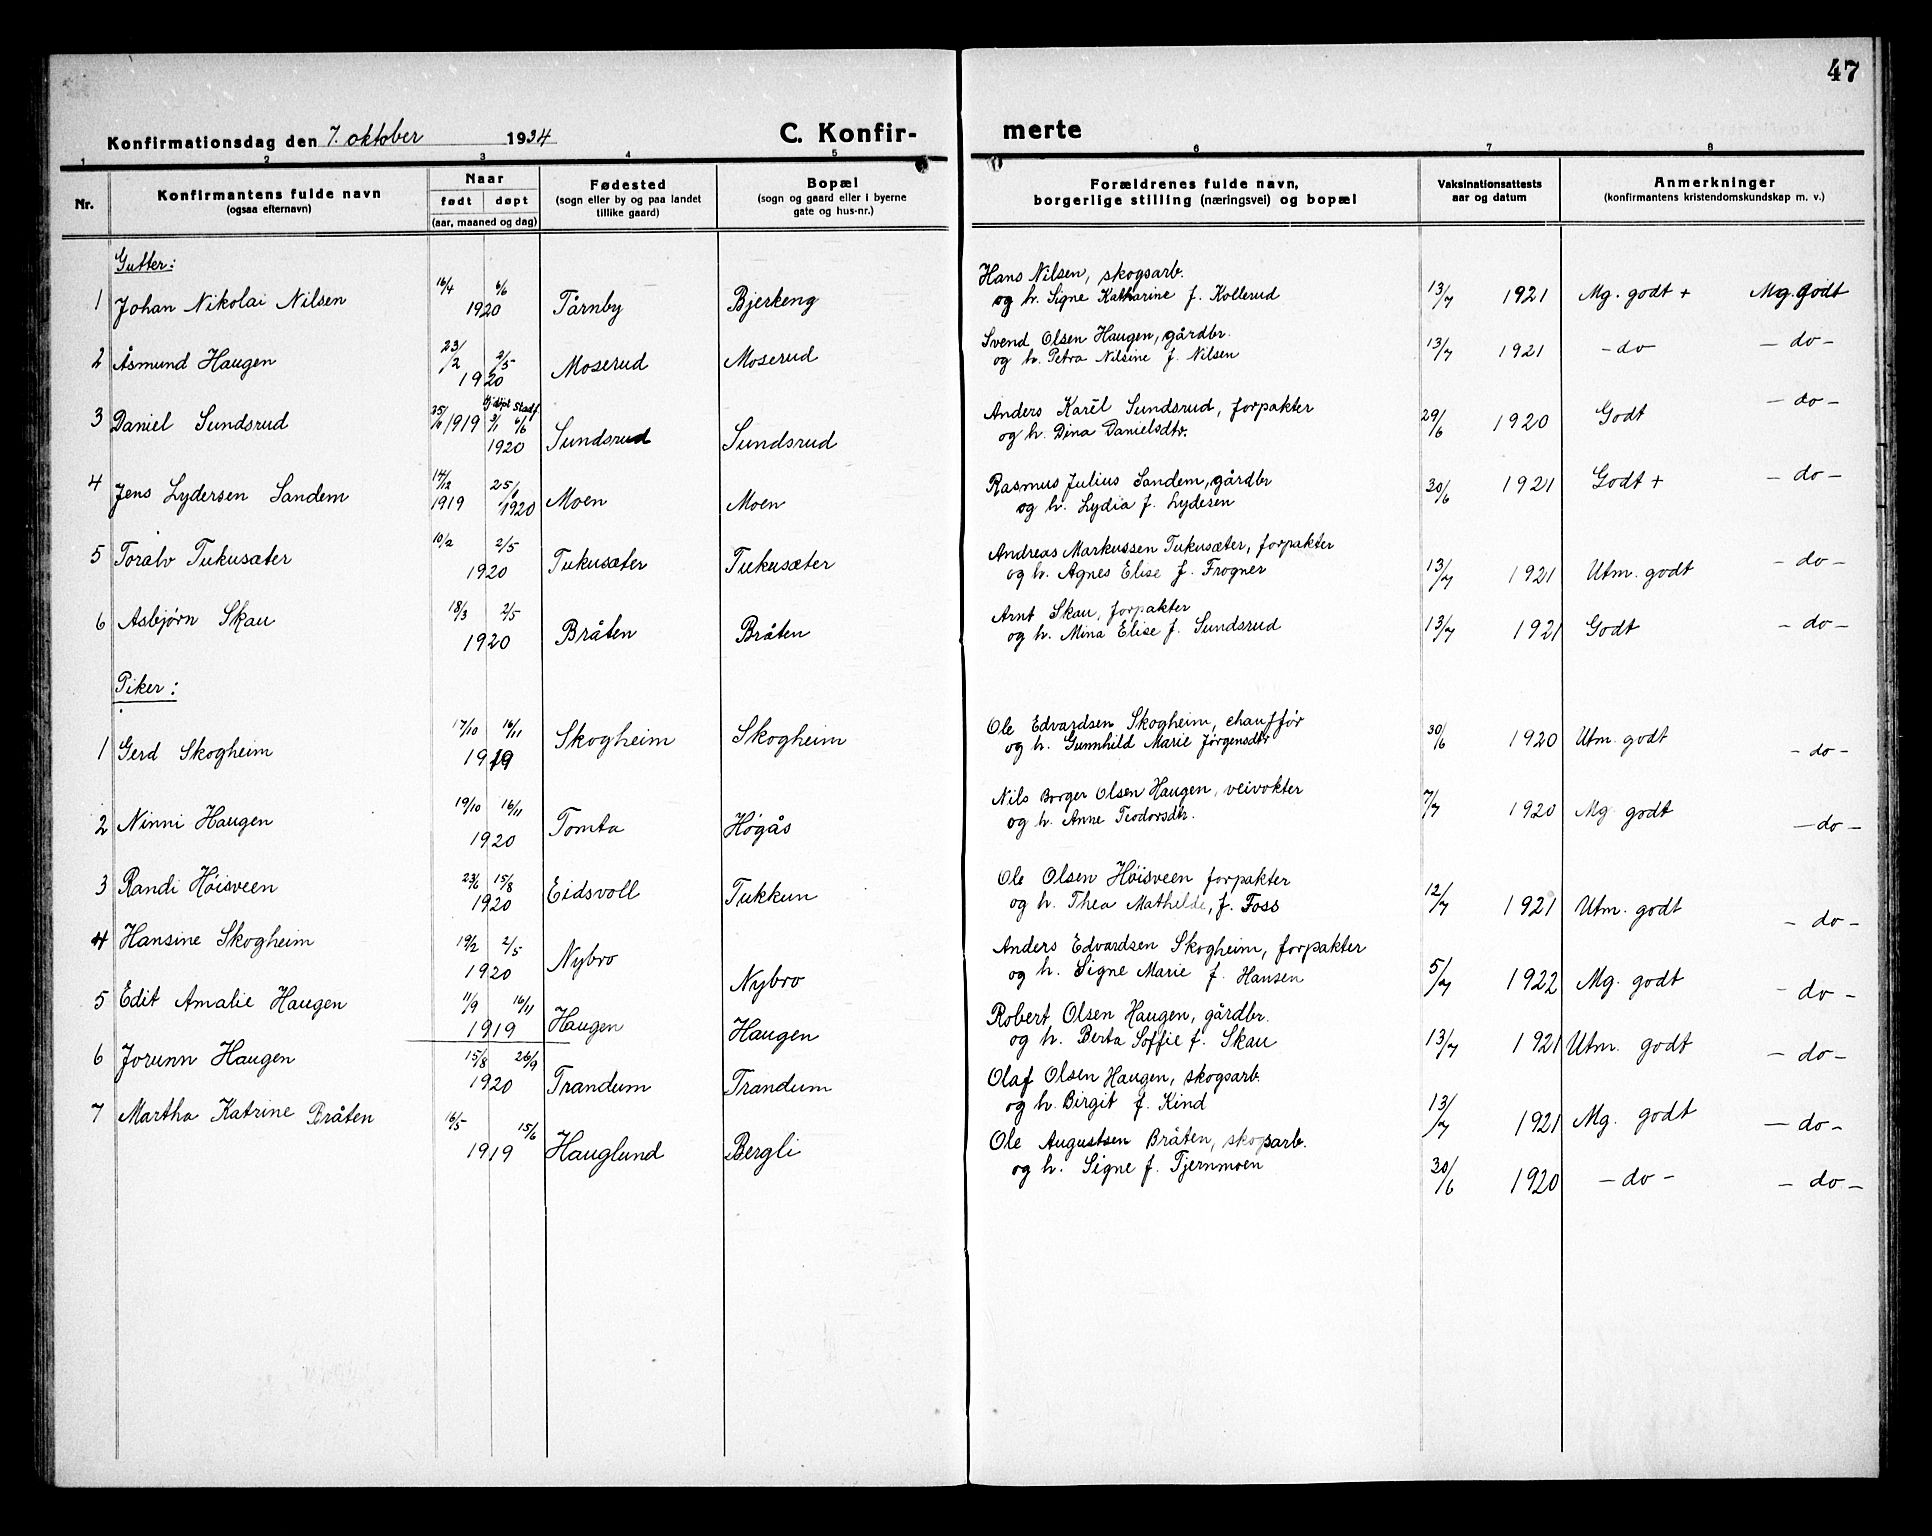 47
Konfirmationsdag den 7. oktober 1934
C. Konfir- merte
1 2 3 4 5 6 7 8
Nr.
Konfirmantens fulde navn
(ogsaa efternavn)
Naar
født døpt
(aar, maaned og dag)
Fødested
(sogn eller by og paa landet
tillike gaard)
Bopæl
(sogn og gaard eller i byerne
gate og hus-nr.)
Forældrenes fulde navn,
borgerlige stilling (næringsvei) og bopæl
Vaksinationsattests
aar og datum
Anmerkninger
(konfirmantens kristendomskundskap m. v.)
Gutter:
1 Johan Nikolai Nilsen 16/4 6/6 1920 Tårnby Bjerkeng
Hans Nilsen, skogsarb.
og h. Signe Katharine f. Kollerud 13/7 1921 Mg. godt + Mg. godt
2 Åsmund Haugen 23/2 2/5 1920 Moserud Moserud
Svend Olsen Haugen, gårdbr.
og h. Petra Nilsine f. Nilsen 13/7 1921 - do - - do -
3 Daniel Sundsrud 25/6 1919 Hjdøpt 3/1 Stadf. 6/6 1920 Sundsrud Sundsrud
Anders Karel Sundsrud, forpakter
og h. Dina Danielsdtr. 29/6 1920 Godt - do -
4 Jens Lydersen Sandem 14/12 1919 25/1 1920 Moen Moen
Rasmus Julius Sandem, gårdbr
og h. Lydia f. Lydesen 30/6 1921 Godt + - do -
5 Toralv Tukusæter 10/2 2/5 1920 Tukusæter Tukusæter
Andreas Markussen Tukusæter, forpakter
og h. Agnes Elise f. Frogner 13/7 1921 Utm. godt - do -
6 Asbjørn Skau 18/3 2/5 1920 Bråten Bråten
Arnt Skau, forpakter
og h. Mina Elise f. Sundsrud 13/7 1921 Godt - do -
Piker:
1 Gerd Skogheim 17/10 16/11 1919 Skogheim Skogheim
Ole Edvardsen Skogheim, chauffør
og h. Gunnhild Marie Jørgensdtr 30/6 1920 Utm. godt - do -
2 Ninni Haugen 19/10 16/11 1920 Tomta Høgås
Nils Borger Olsen Haugen, veivokter
og h. Anne Teodorsdtr. 7/7 1920 Mg godt - do -
3 Randi Høisveen 23/6 15/8 1920 Eidsvoll Tukkun
Ole Olsen Høisveen forpakter
og h. Thea Mathilde, f. Foss 12/7 1921 Utm. godt - do -
4 Hansine Skogheim 19/2 2/5 1920 Nybro Nybro
Anders Edvardsen Skogheim, forpakter
og h. Signe Marie f. Hansen 5/7 1922 Mg. godt - do -
5 Edit Amalie Haugen 11/9 16/11 1919 Haugen Haugen
Robert Olsen Haugen, gårdbr.
og h. Berta Soffie f. Skau 13/7 1921 Utm. godt - do -
6 Jorunn Haugen 15/8 26/9 1920 Trandum Trandum
Olaf Olsen Haugen, skogsarb.
og h. Birgit f. Kind 13/7 1921 Mg. godt - do -
7 Martha Katrine Bråten 16/5 15/6 1919 Hauglund Bergli
Ole Augustsen Bråten, skogsarb.
og h. Signe f. Tjernmoen 30/6 1920 - do - - do -